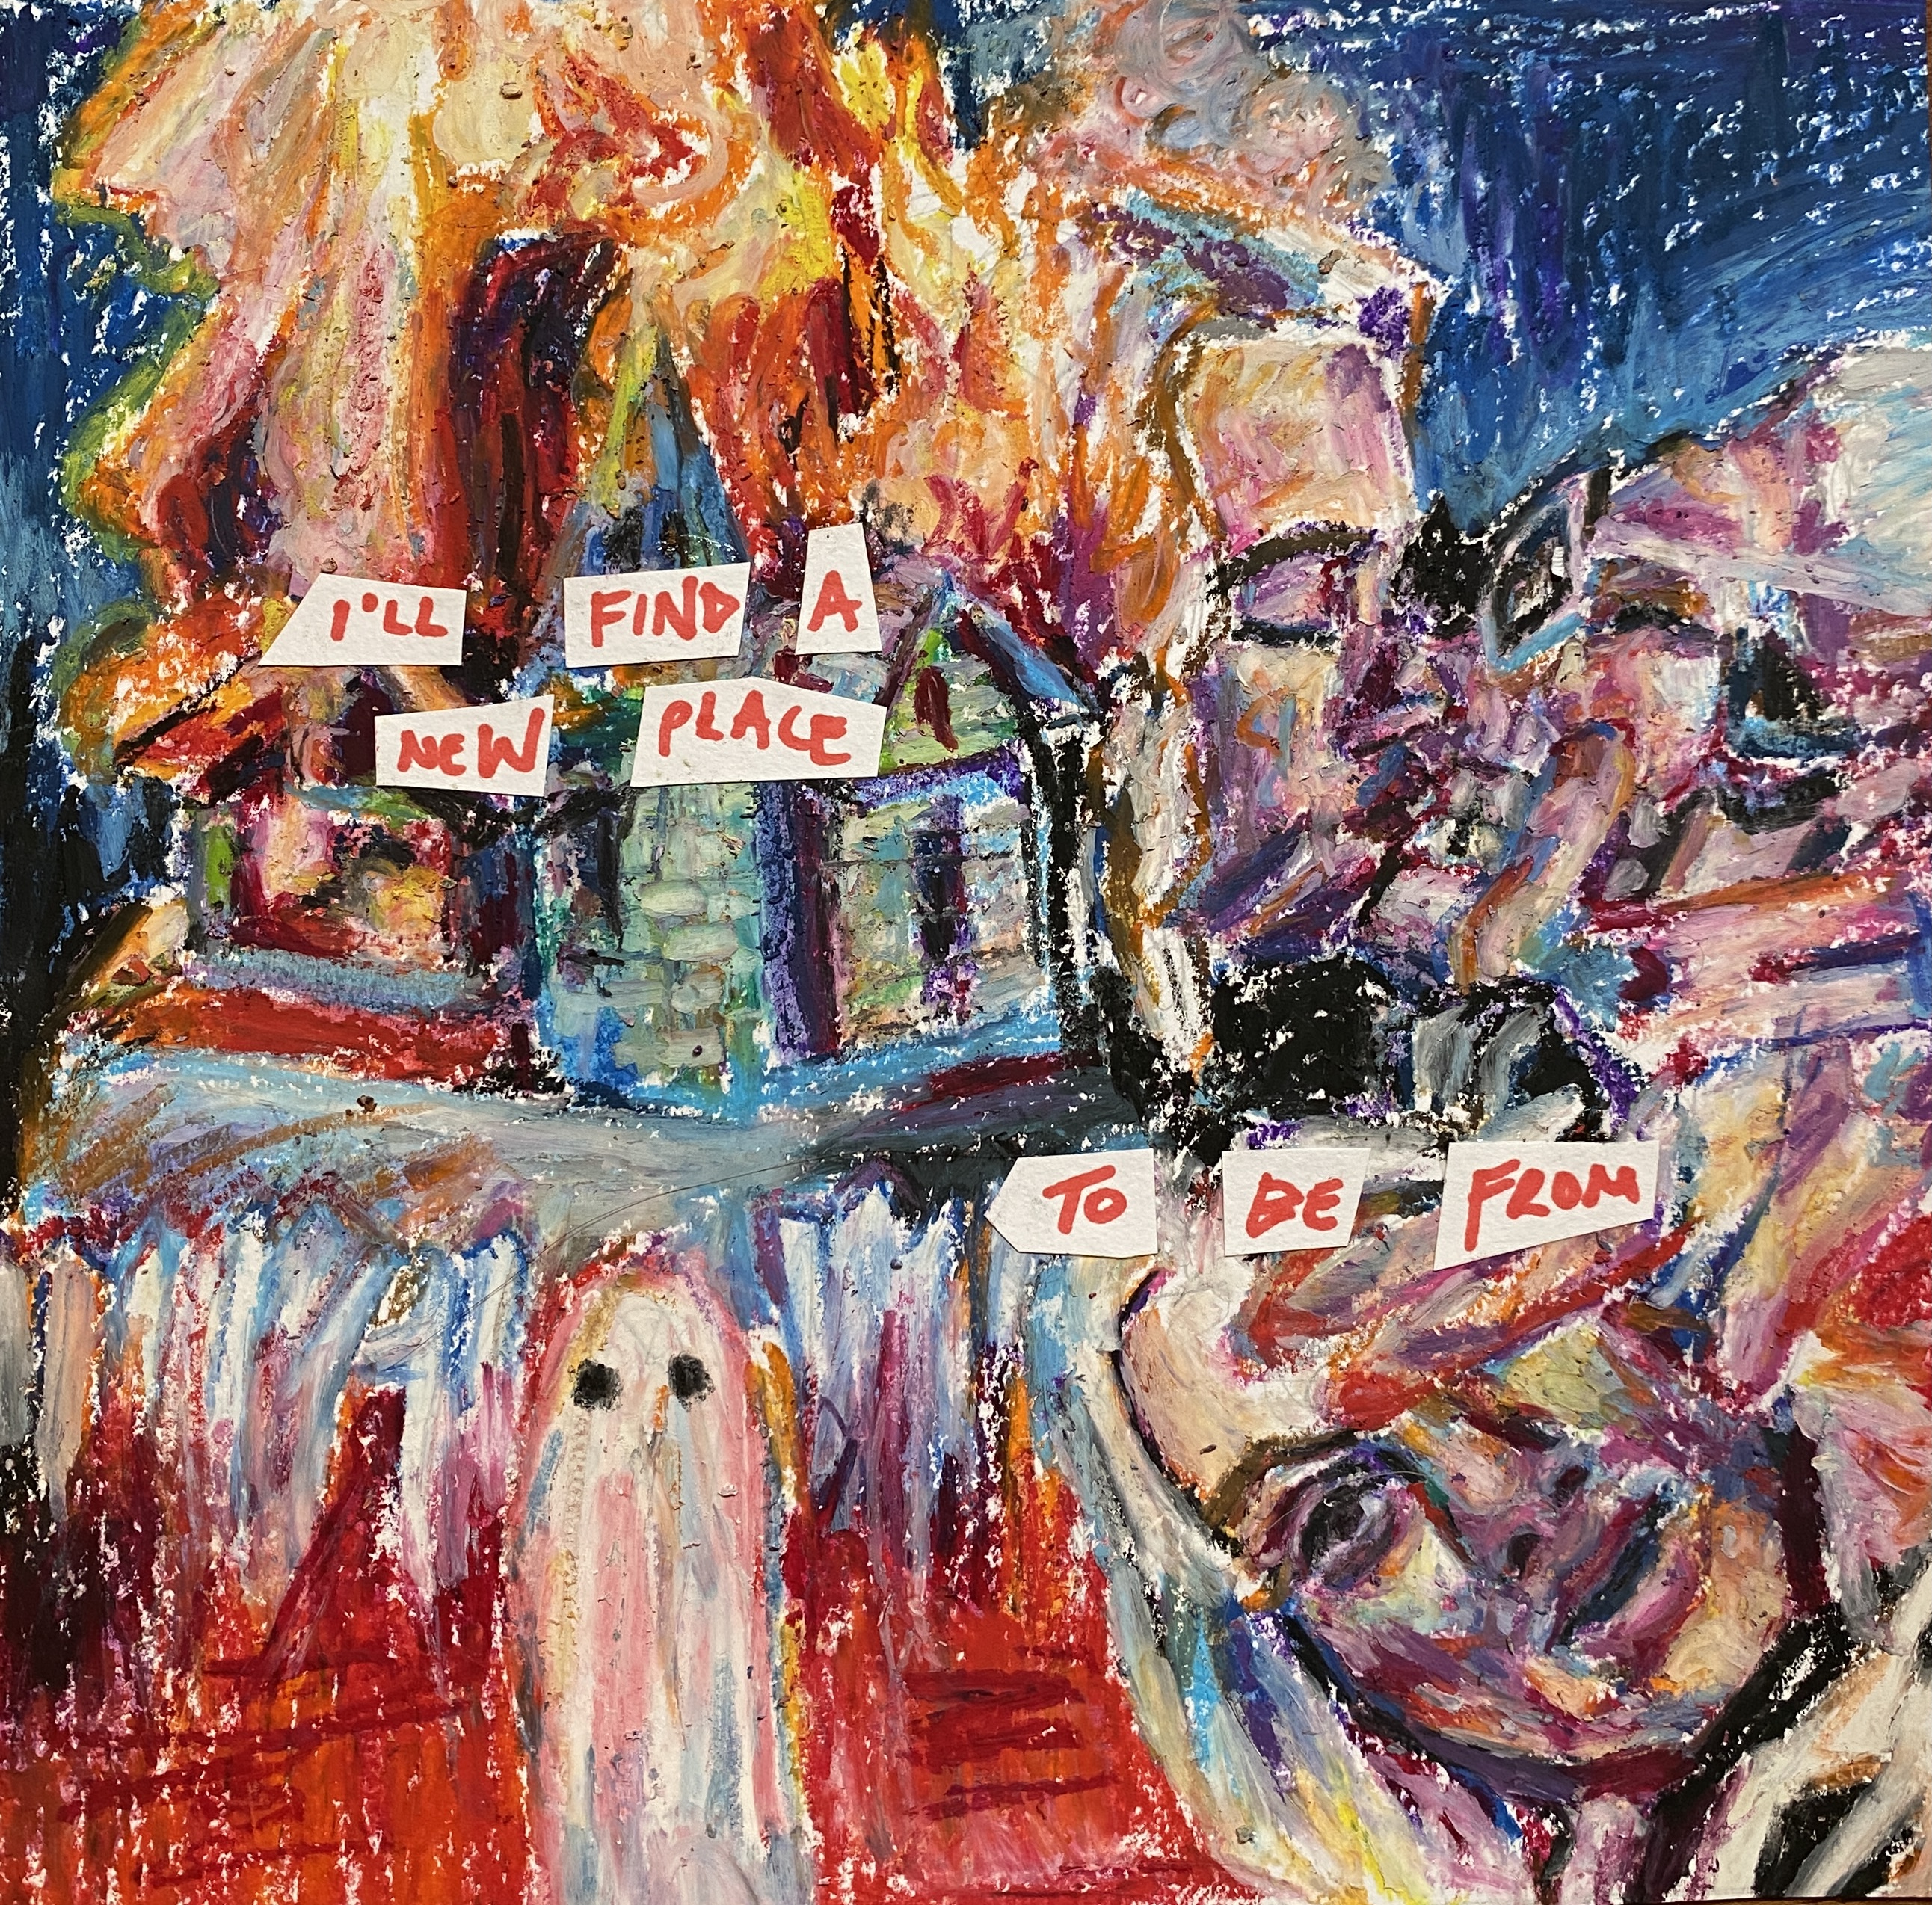 I'LL FIND A
NEW PLACE
TO BE FROM